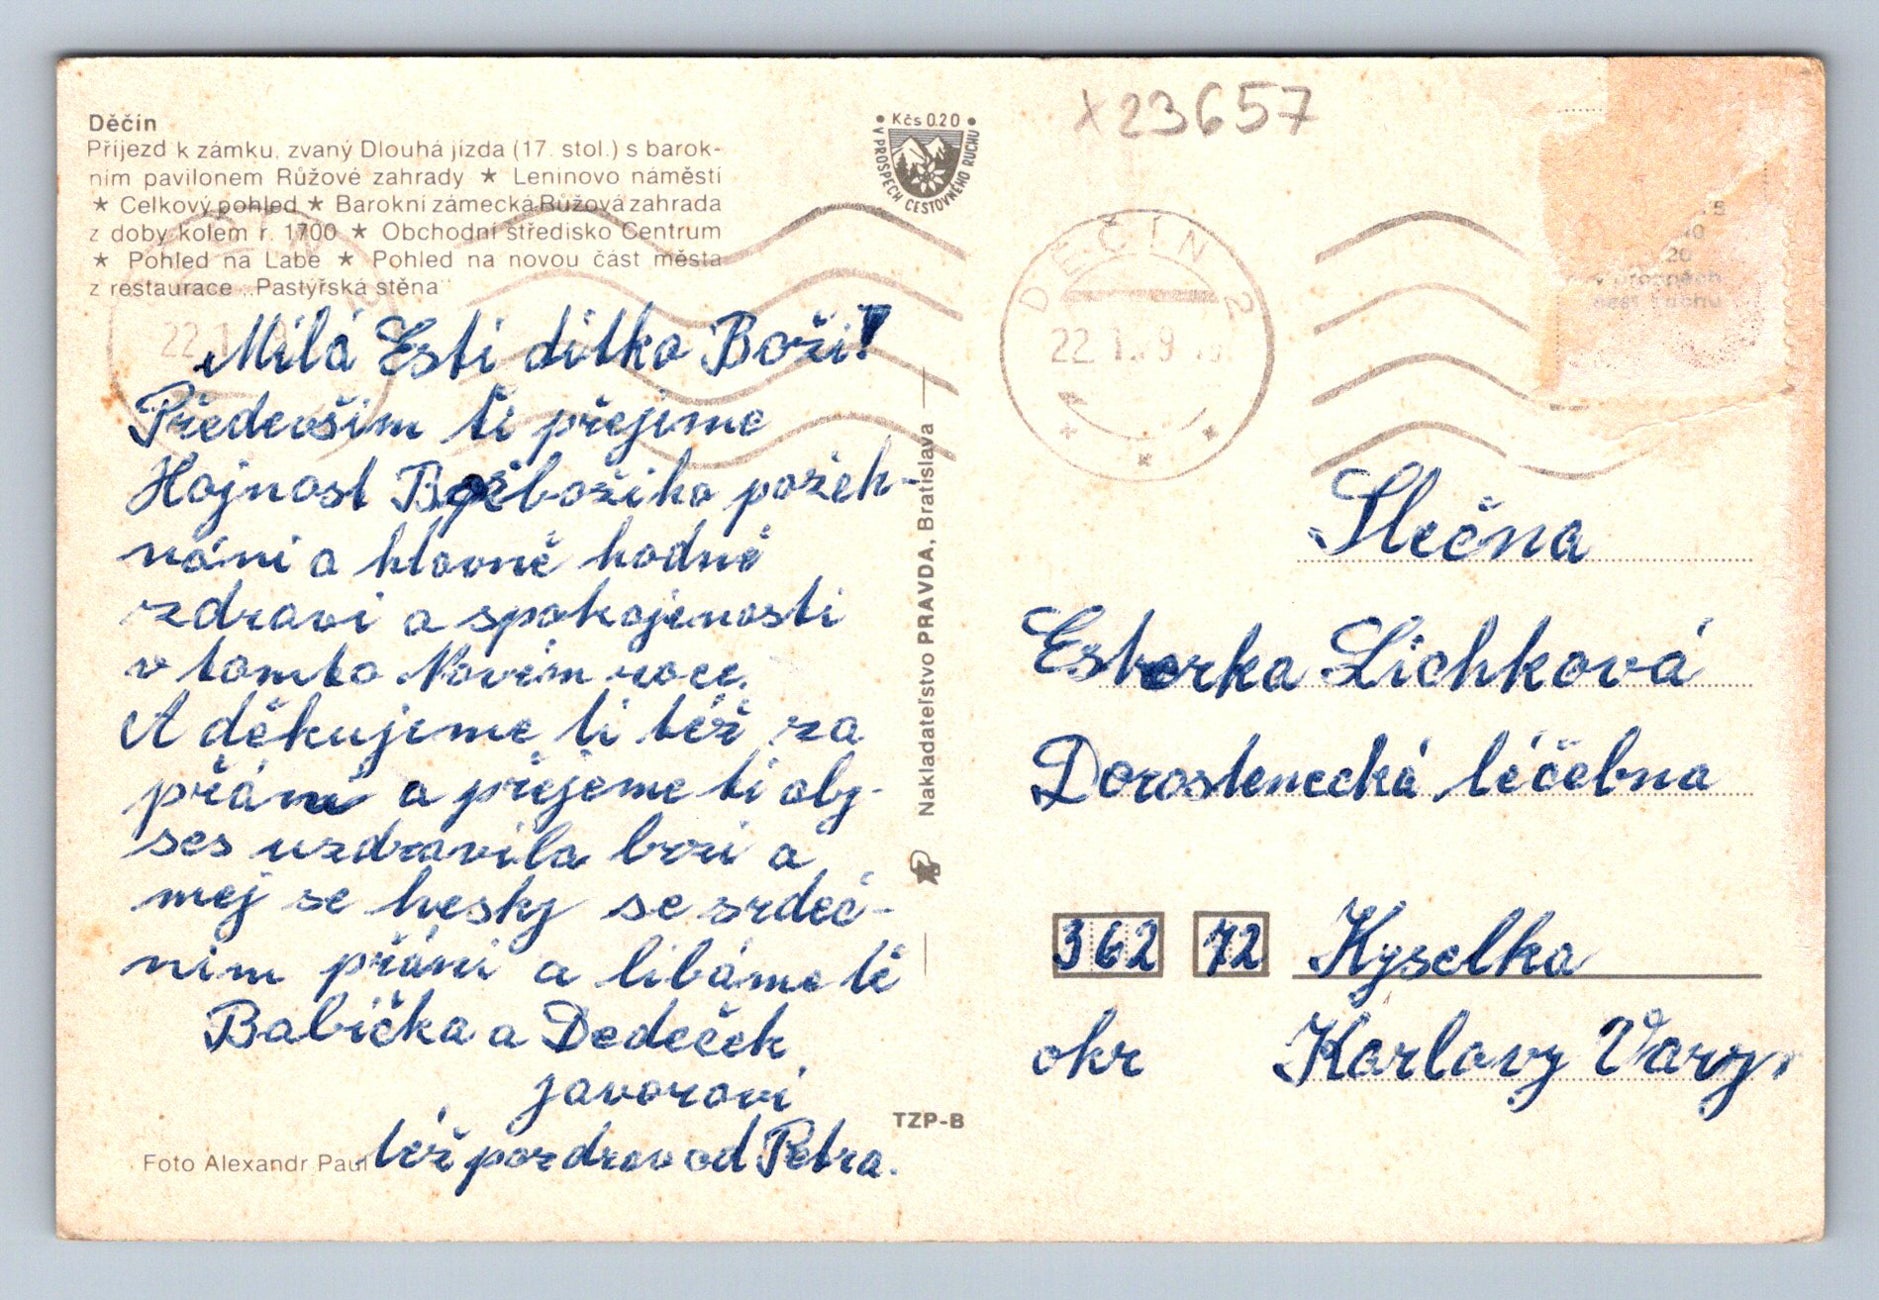 Děčín
Příjezd k zámku, zvaný Dlouhá jízda (17. stol.) s barok-
ním pavilonem Růžové zahrady ★ Leninovo náměstí
★ Celkový pohled ★ Barokní zámecká Růžová zahrada
z doby kolem r. 1700 ★ Obchodní středisko Centrum
★ Pohled na Labe ★ Pohled na novou část města
z restaurace „Pastýřská stěna"
Milá Esti dítko Boží!
Především ti přejeme
Hojnost božího požeh-
nání a hlavně hodně
zdraví a spokojenosti
v tomto Novém roce.
A děkujeme ti též za
přání a přejeme ti aby-
ses uzdravila brzi a
mej se hesky se srdeč-
ním přáni a libáme tě
Babička a Dedeček
Javorovi
též pozdrav od Petra.
Foto Alexandr Paul
Kčs 0.20
V PROSPECH CESTOVNÉHO RUCHU
Nakladateľstvo PRAVDA, Bratislava
TZP-B
x23657
DĚČÍN 2
22.1.
Slečna
Esterka Lichková
Dorostenecká léčebna
362 72 Kyselka
okr Karlovy Vary.